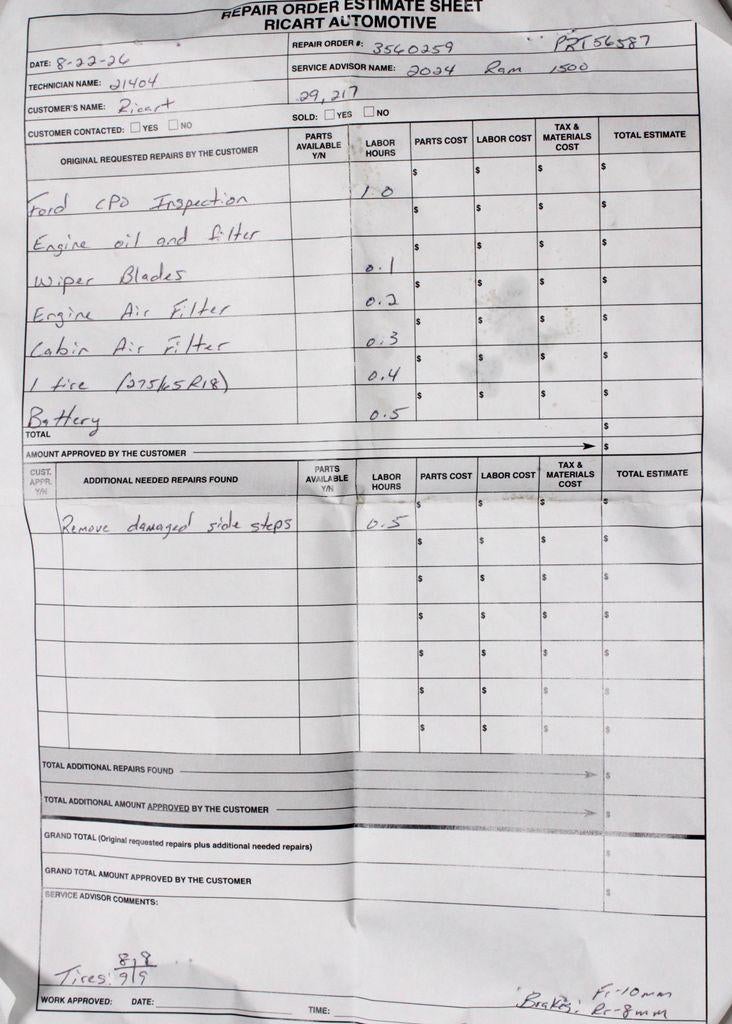 REPAIR ORDER ESTIMATE SHEET
RICART AUTOMOTIVE
DATE: 8-22-26
REPAIR ORDER #: 3560259 PRT56587
TECHNICIAN NAME: 21404
SERVICE ADVISOR NAME: 2024 Ram 1500
CUSTOMER'S NAME: Ricart
29,217
CUSTOMER CONTACTED: YES NO
SOLD: YES NO
ORIGINAL REQUESTED REPAIRS BY THE CUSTOMER PARTS AVAILABLE Y/N LABOR HOURS PARTS COST LABOR COST TAX & MATERIALS COST TOTAL ESTIMATE
Ford CPO Inspection 1.0 $ $ $ $
Engine oil and filter $ $ $ $
Wiper Blades 0.1 $ $ $ $
Engine Air Filter 0.2 $ $ $ $
Cabin Air Filter 0.3 $ $ $ $
1 tire (275/65R18) 0.4 $ $ $ $
Battery 0.5 $ $ $ $
TOTAL $
AMOUNT APPROVED BY THE CUSTOMER $
CUST. APPR. Y/N ADDITIONAL NEEDED REPAIRS FOUND PARTS AVAILABLE Y/N LABOR HOURS PARTS COST LABOR COST TAX & MATERIALS COST TOTAL ESTIMATE
Remove damaged side steps 0.5 $ $ $ $
$ $ $ $
$ $ $ $
$ $ $ $
$ $ $ $
$ $ $ $
$ $ $ $
TOTAL ADDITIONAL REPAIRS FOUND $
TOTAL ADDITIONAL AMOUNT APPROVED BY THE CUSTOMER $
GRAND TOTAL (Original requested repairs plus additional needed repairs) $
GRAND TOTAL AMOUNT APPROVED BY THE CUSTOMER $
SERVICE ADVISOR COMMENTS:
Tires: 8|8
9|9
Brakes: Fr-10mm
Rr-8mm
WORK APPROVED: DATE: TIME: